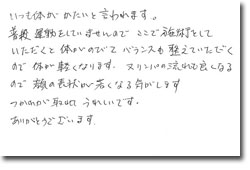 いつも体が かたいと言われます。
普段 運動をしていませんので ここで施術をして
いただくと 体がのびて バランスも 整えていただく
ので 体が軽くなります。 又リンパの流れも良くなる
ので 顔の表状が若くなる気がします
つかれが取れて うれしいです。
ありがとうございます